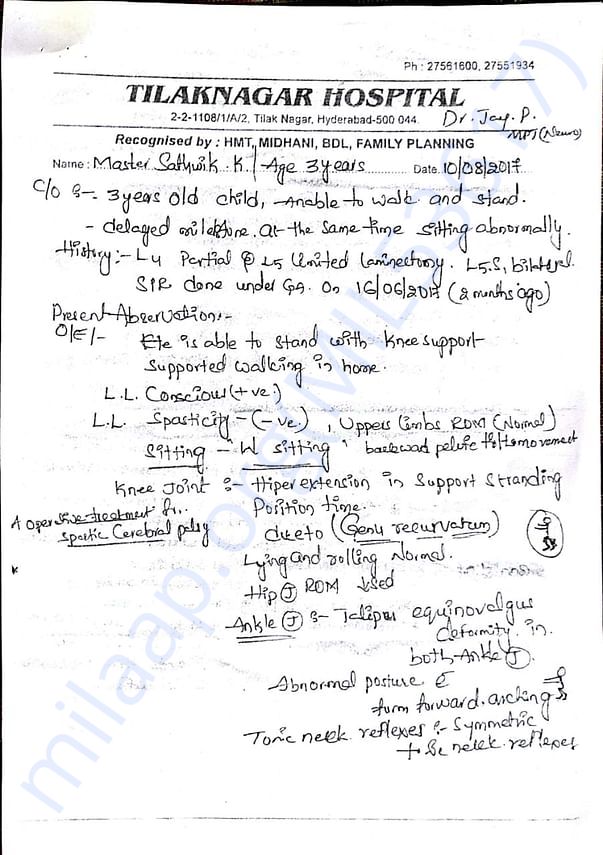 Ph : 27561600, 27551934
TILAKNAGAR HOSPITAL
2-2-1108/1/A/2, Tilak Nagar, Hyderabad-500 044.
Dr. Jay. P.
MPT (Neuro)
Recognised by : HMT, MIDHANI, BDL, FAMILY PLANNING
Name : Master Sathwik. K. / Age 3 years Date. 10/08/2017
C/o :- 3 years old child, unable to walk and stand.
- delayed milestone. at the same time sitting abnormally.
History:- L4 Partial L5 limited laminectomy. L5.S, bilateral
done under GA. On 16/06/2017 (2 months ago)
Present Observation:-
O/E/- He is able to stand with knee support
Supported walking in home.
L.L. Conscious (+ve.)
L.L. Spasticity - (-ve.) , Uppers limbs ROM (Normal)
Sitting - W sitting , backwad pelvic tilt movement
Knee Joint :- Hiper extension in Support Stranding
Position time.
A operative treatment for
spastic Cerebral palsy
due to (Genu recurvatum)
Lying and rolling Normal.
Hip (J) ROM ↓sed
Ankle (J) :- Talipus equinovalgus
deformity. in
both Ankle (J).
Abnormal posture c̄
form forward. arching
Tonic netek reflexes :- Symmetric
netek reflexes
milaap.org